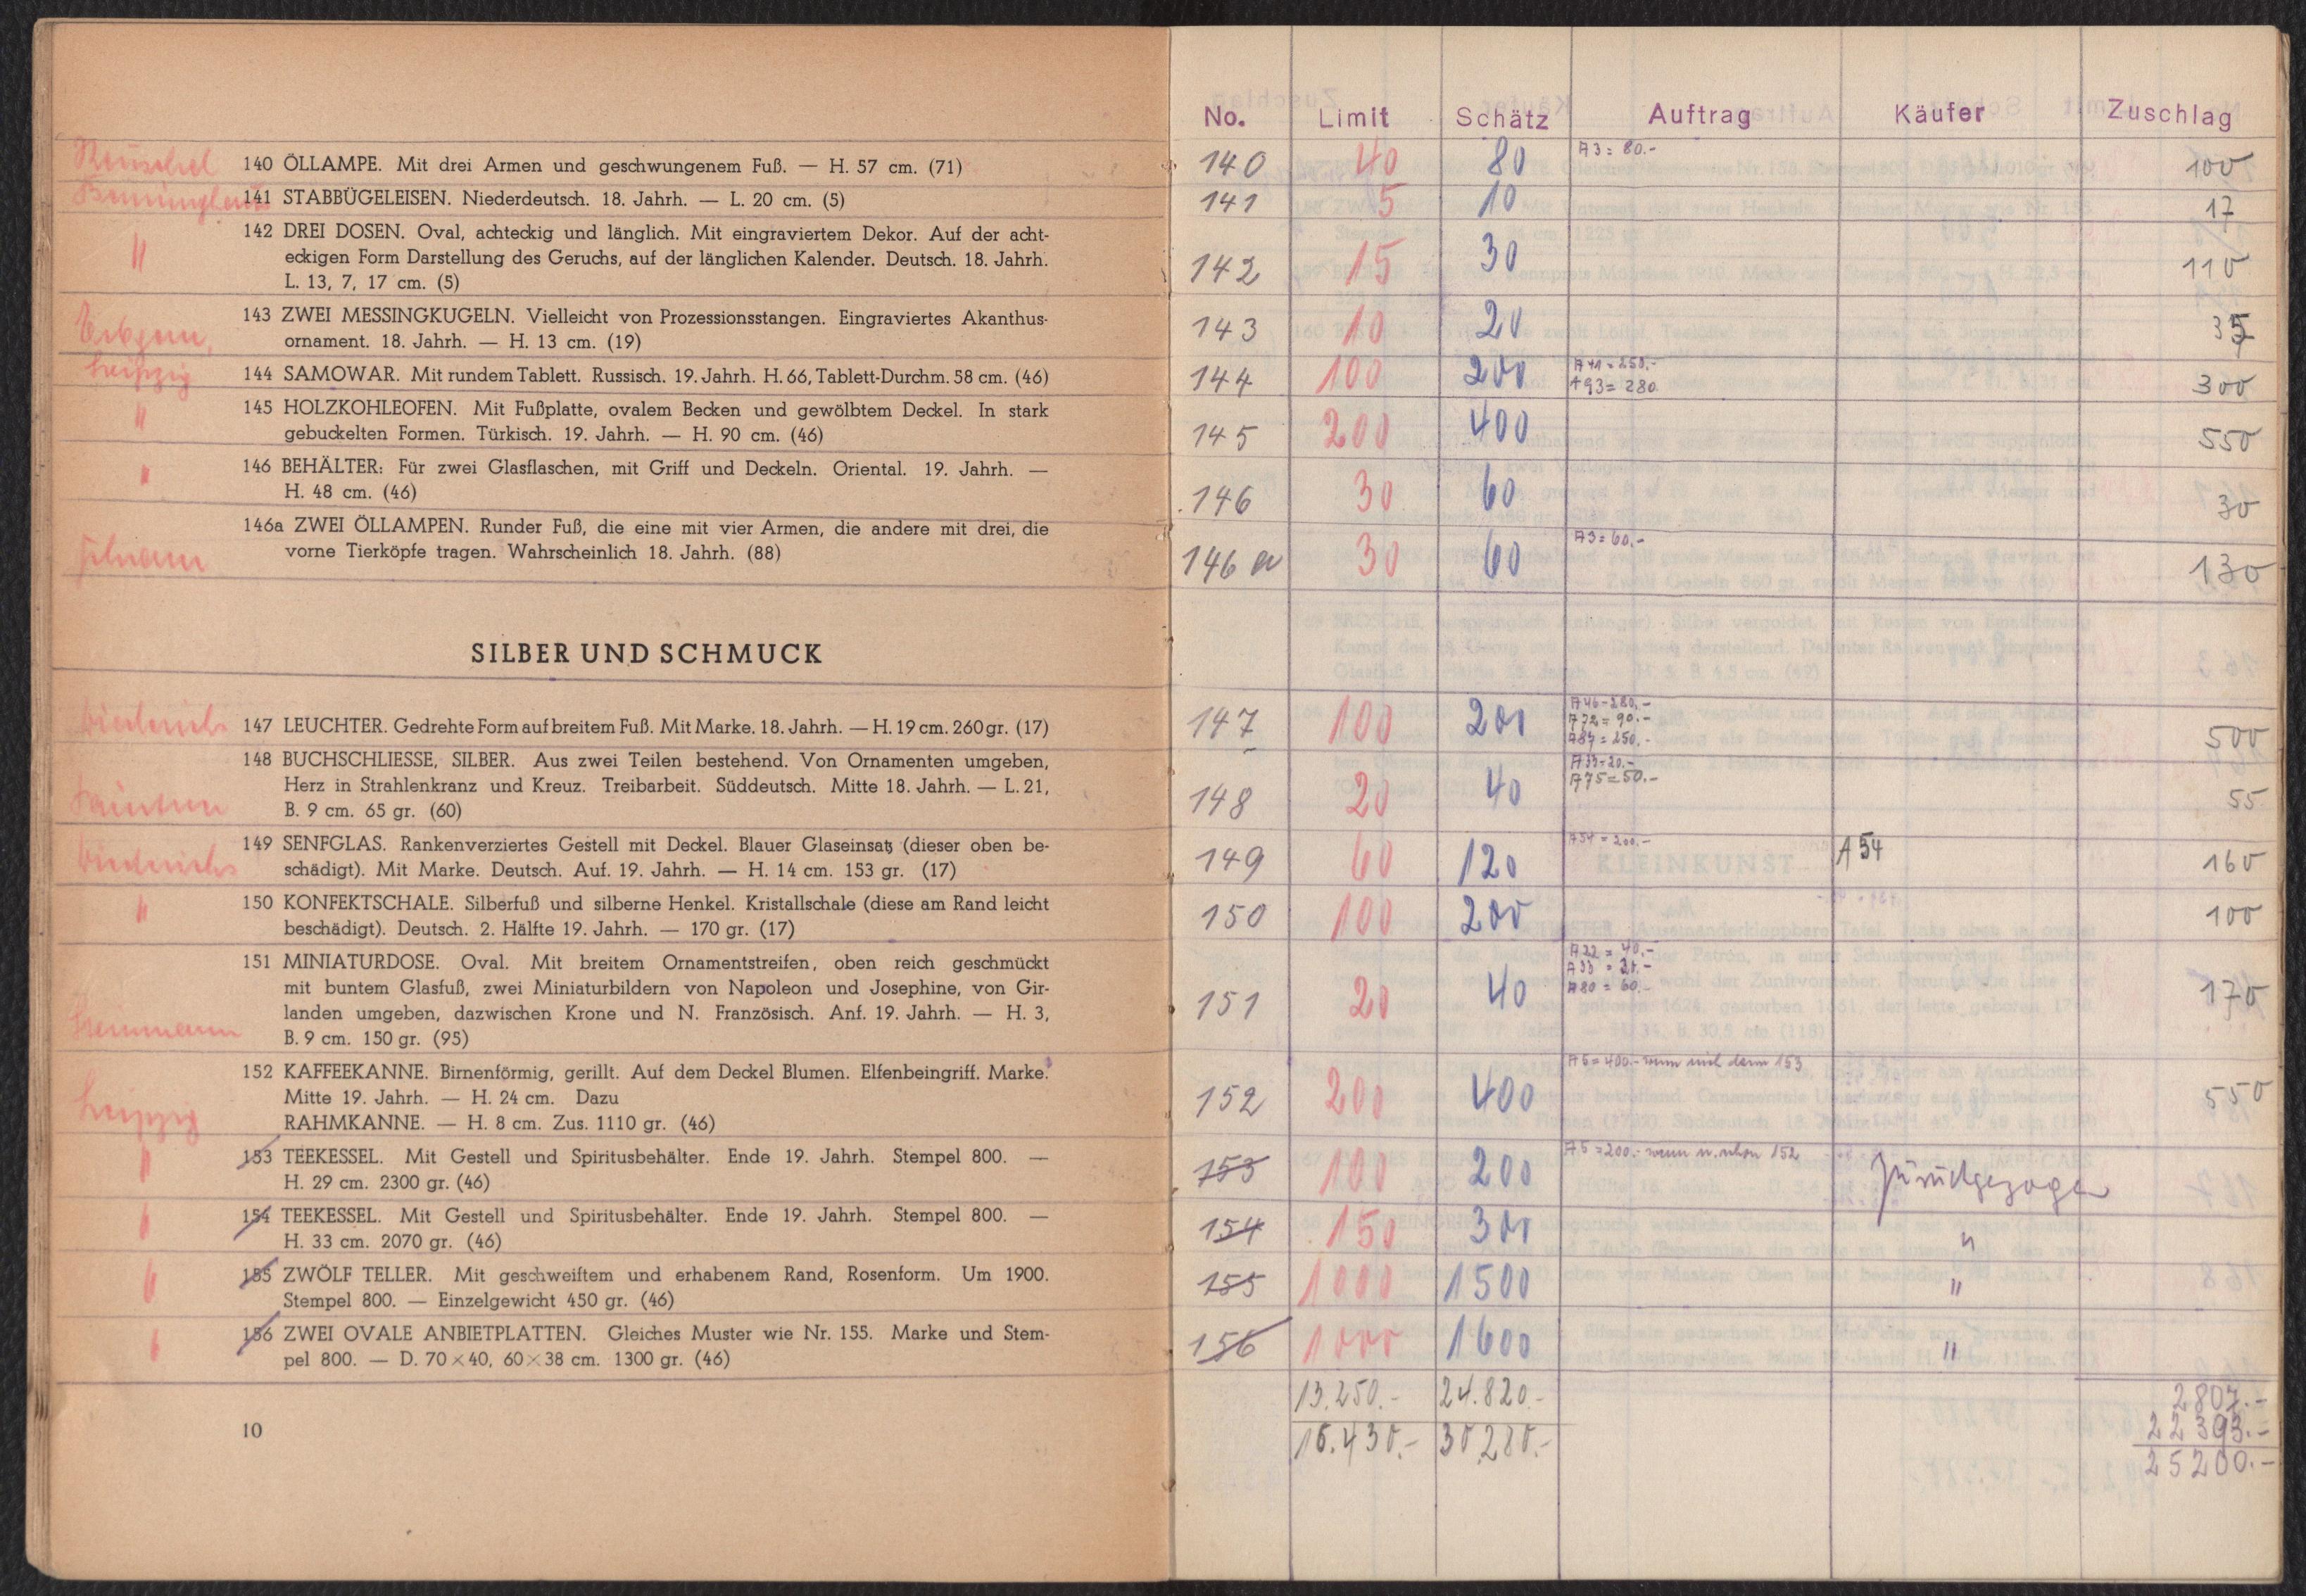 140 ÖLLAMPE. Mit drei Armen und geschwungenem Fuß. — H. 57 cm. (71)
141 STABBÜGELEISEN. Niederdeutsch. 18. Jahrh. — L. 20 cm. (5)
142 DREI DOSEN. Oval, achteckig und länglich. Mit eingraviertem Dekor. Auf der acht-
eckigen Form Darstellung des Geruchs, auf der länglichen Kalender. Deutsch. 18. Jahrh.
L. 13, 7, 17 cm. (5)
"
143 ZWEI MESSINGKUGELN. Vielleicht von Prozessionsstangen. Eingraviertes Akanthus-
ornament. 18. Jahrh. — H. 13 cm. (19)
Leipzig
144 SAMOWAR. Mit rundem Tablett. Russisch. 19. Jahrh. H. 66, Tablett-Durchm. 58 cm. (46)
" 145 HOLZKOHLEOFEN. Mit Fußplatte, ovalem Becken und gewölbtem Deckel. In stark
gebuckelten Formen. Türkisch. 19. Jahrh. — H. 90 cm. (46)
" 146 BEHÄLTER: Für zwei Glasflaschen, mit Griff und Deckeln. Oriental. 19. Jahrh. —
H. 48 cm. (46)
146a ZWEI ÖLLAMPEN. Runder Fuß, die eine mit vier Armen, die andere mit drei, die
vorne Tierköpfe tragen. Wahrscheinlich 18. Jahrh. (88)
SILBER UND SCHMUCK
147 LEUCHTER. Gedrehte Form auf breitem Fuß. Mit Marke. 18. Jahrh. — H. 19 cm. 260 gr. (17)
148 BUCHSCHLIESSE, SILBER. Aus zwei Teilen bestehend. Von Ornamenten umgeben,
Herz in Strahlenkranz und Kreuz. Treibarbeit. Süddeutsch. Mitte 18. Jahrh. — L. 21,
B. 9 cm. 65 gr. (60)
149 SENFGLAS. Rankenverziertes Gestell mit Deckel. Blauer Glaseinsatz (dieser oben be-
schädigt). Mit Marke. Deutsch. Auf. 19. Jahrh. — H. 14 cm. 153 gr. (17)
" 150 KONFEKTSCHALE. Silberfuß und silberne Henkel. Kristallschale (diese am Rand leicht
beschädigt). Deutsch. 2. Hälfte 19. Jahrh. — 170 gr. (17)
151 MINIATURDOSE. Oval. Mit breitem Ornamentstreifen, oben reich geschmückt
mit buntem Glasfuß, zwei Miniaturbildern von Napoleon und Josephine, von Gir-
landen umgeben, dazwischen Krone und N. Französisch. Anf. 19. Jahrh. — H. 3,
B. 9 cm. 150 gr. (95)
152 KAFFEEKANNE. Birnenförmig, gerillt. Auf dem Deckel Blumen. Elfenbeingriff. Marke.
Mitte 19. Jahrh. — H. 24 cm. Dazu
Leipzig
RAHMKANNE. — H. 8 cm. Zus. 1110 gr. (46)
" 153 TEEKESSEL. Mit Gestell und Spiritusbehälter. Ende 19. Jahrh. Stempel 800. —
H. 29 cm. 2300 gr. (46)
" 154 TEEKESSEL. Mit Gestell und Spiritusbehälter. Ende 19. Jahrh. Stempel 800. —
H. 33 cm. 2070 gr. (46)
" 155 ZWÖLF TELLER. Mit geschweiftem und erhabenem Rand, Rosenform. Um 1900.
Stempel 800. — Einzelgewicht 450 gr. (46)
" 156 ZWEI OVALE ANBIETPLATTEN. Gleiches Muster wie Nr. 155. Marke und Stem-
pel 800. — D. 70 × 40, 60 × 38 cm. 1300 gr. (46)
10
No. Limit Schätz Auftrag Käufer Zuschlag
140 40 80 A3 = 80.- 100
141 5 10 17
142 15 30 110
143 10 20 35
144 100 200 A41 = 250.- 300
A93 = 280
145 200 400 550
146 30 60 30
146a 30 60 A3 = 60.- 130
147 100 200 A46 - 280.- 500
A72 = 90.-
A87 = 250.-
148 20 40 A33 = 20.- 55
A75 = 50.-
149 60 120 A54 = 200.- A 54 160
150 100 200 100
151 20 40 A22 = 40.- 170
A33 = 21.-
A80 = 60.-
152 200 400 A5 = 400.- 153 550
153 100 200 A5 = 200.- wenn 152 Zurückgezogen
154 150 300 "
155 1000 1500 "
156 1000 1600 "
13.250.- 24.820.- 2807.-
16.430.- 30.280.- 22393.-
25200.-